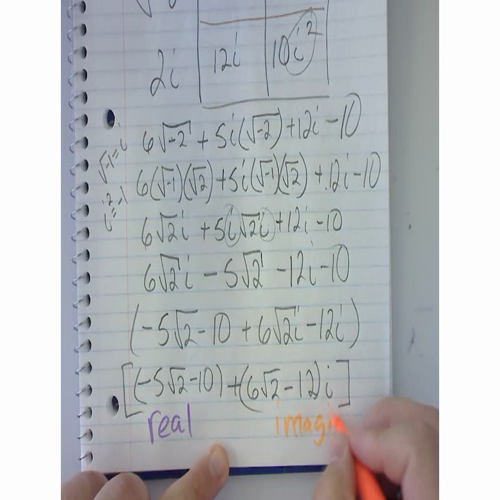 2i 12i 10i²
6√-2 + 5i(√-2) + 12i - 10
√-1 = i
6(√-1)(√2) + 5i(√-1)(√2) + 12i - 10
i² = -1
6√2i + 5i√2i + 12i - 10
6√2i - 5√2 - 12i - 10
(-5√2 - 10 + 6√2i - 12i)
[(-5√2 - 10) + (6√2 - 12)i]
real imagi